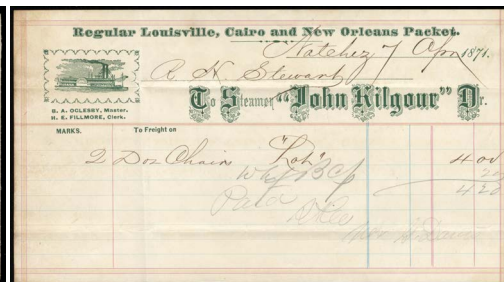 Regular Louisville, Cairo and New Orleans Packet.
Natchez 7 Apr 1871.
R. H. Stewart
To Steamer "John Kilgour" Dr.
B. A. OGLESBY, Master.
H. E. FILLMORE, Clerk.
MARKS. To Freight on
2 Doz Chairs "Loh" 4 00
Whf B Cp 20
4 20
Paid